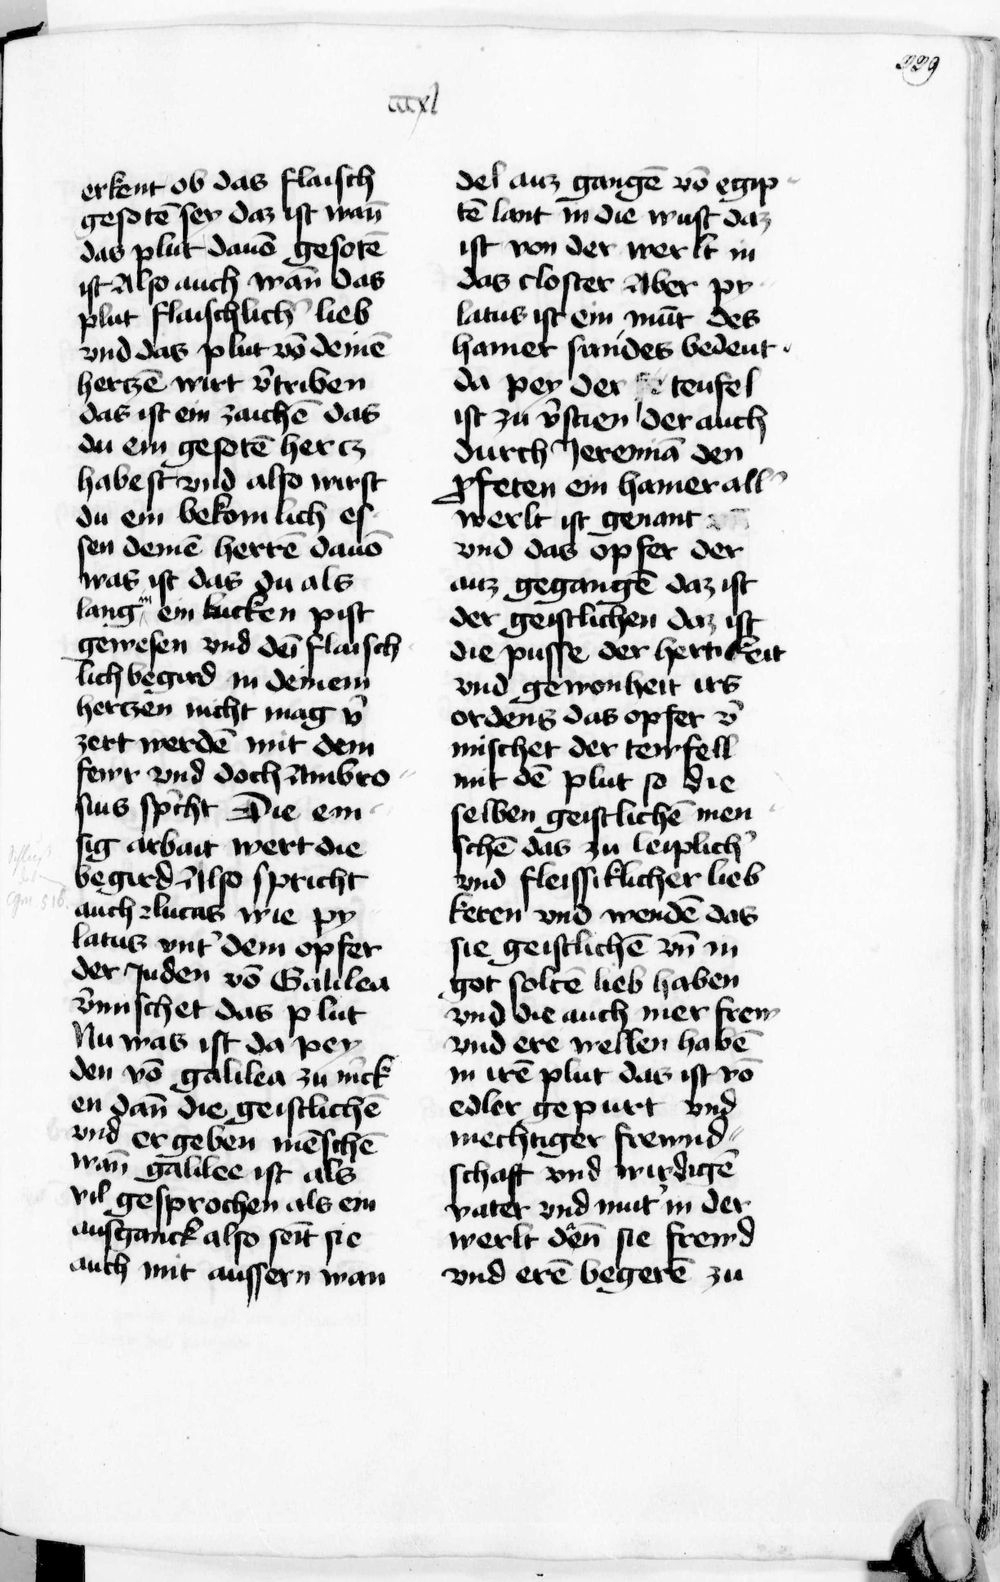 229
ccxl
erkent ob das flaisch
gesotē sey daz ist wan̄
das plut dauō gesotē
ist Also auch wan̄ das
plut flaischlich' lieb
vnd das plut vō deinē
hertzē wirt v'triben
das ist ein zaichē das
du ein gesotē hercz
habest vnd also wirst
du ein bekomlich es
sen deinē herrē dauō
was ist das du als
lang ein kucken pist
gewesen vnd dei flaisch
lich begird in deinem
hertzen nicht mag v'
zert werdē mit dem
fewr vnd doch Ambro
sius sp'cht Die em
sig arbait wert die
begird Also spricht
auch lucas wie py
latus vnt' dem opfer
der Juden vō Galilea
v'mischet das plut
Nu was ist da pey
den vō galilea zu m'ck
en dan̄ die geistlichē
vnd ergeben mēschē
wan̄ galilee ist als
vil gesprochen als ein
ausganck also seīt sie
auch mit aussern wan
del auz gangē vō egip
tē lant in die wust daz
ist von der werlt in
das closter Aber py
latus ist ein mūt des
hamer smides bedeut
da pey der teufel
ist zu v'stien der auch
durch Jeremiā den
p̄feten ein hamer all'
werlt ist genant
vnd das opfer der
auz gegangē daz ist
der geistlichen daz ist
die pusse der hertikeit
vnd gewonheit irs
ordens das opfer v'
mischet der tewfell
mit dē plut so die
selben geistlichē men
schē das zu leiplich'
vnd fleissiklicher lieb
keren vnd wendē das
sie geistlichē vn̄ in
got soltē lieb haben
vnd die auch mer frew
vnd ere wellen habē
in irē plut das ist vō
edler gepurt vnd
mechtiger frewnd
schaft vnd wirdigē
vater vnd mut' in der
werlt den̄ sie frewd
vnd erē begerē zu